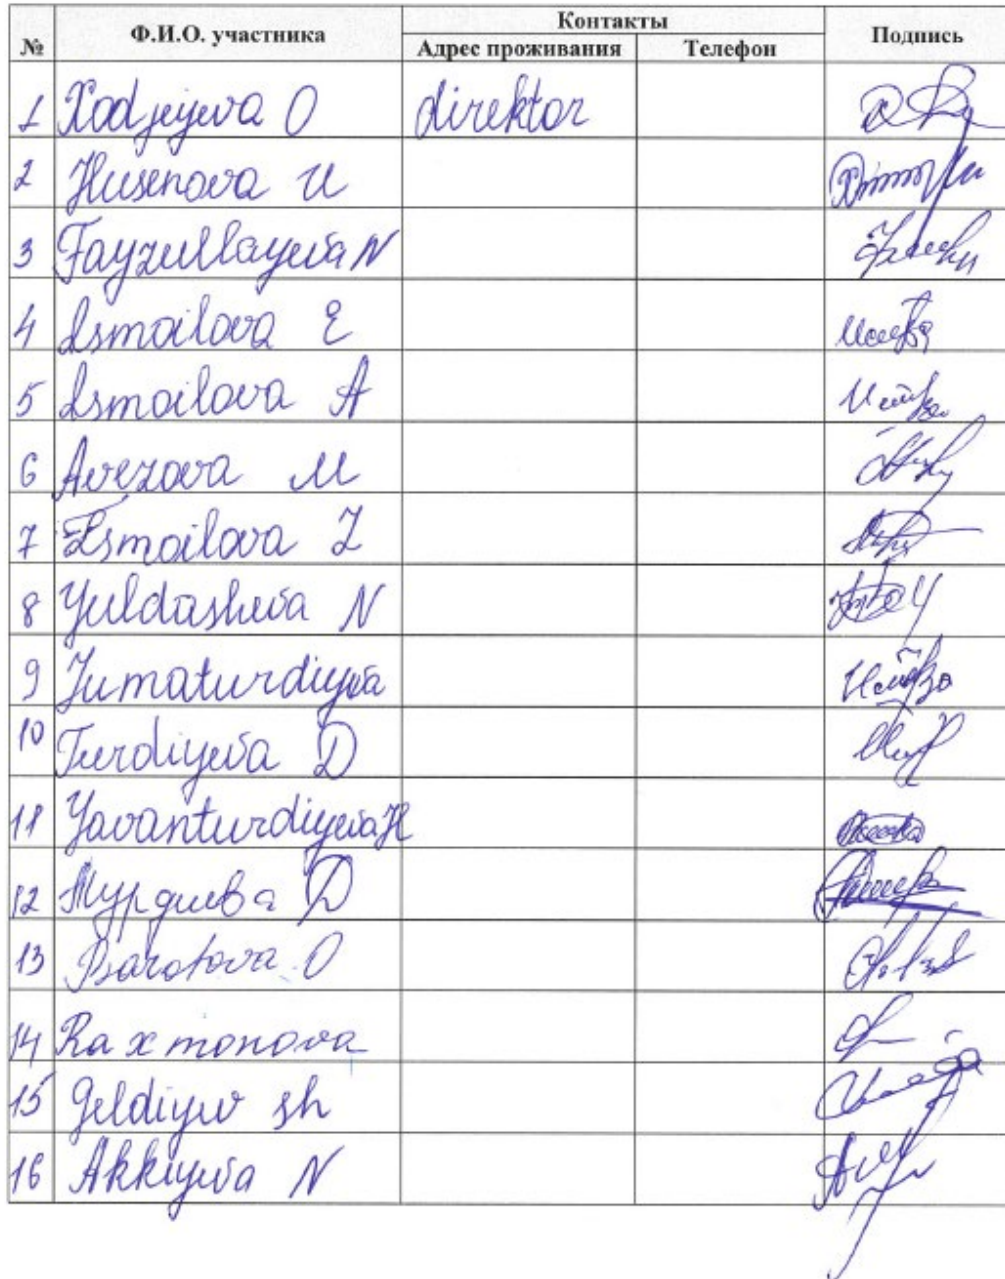 № Ф.И.О. участника Контакты Подпись
Адрес проживания Телефон
1 Xodjeyeva O direktor
2 Husenova U
3 Fayzullayeva N
4 Ismoilova E
5 Ismoilova A
6 Avezova M
7 Ismoilova Z
8 Yuldasheva N
9 Jumaturdiyeva
10 Turdiyeva D
11 Yavanturdiyeva H
12 Турдиева D
13 Barotova O
14 Raxmonova
15 Geldiyev sh
16 Akkiyeva N